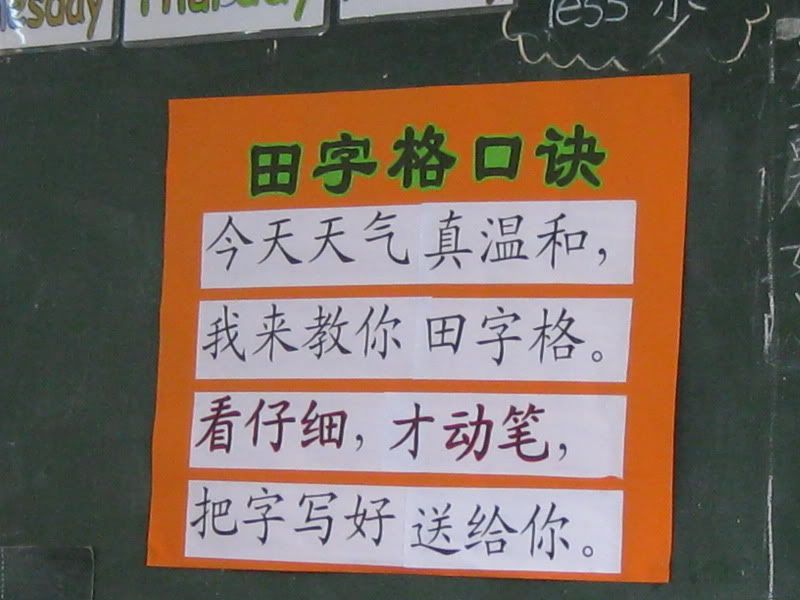 Thursday
less 少
田字格口诀
今天天气真温和，
我来教你田字格。
看仔细，才动笔，
把字写好送给你。